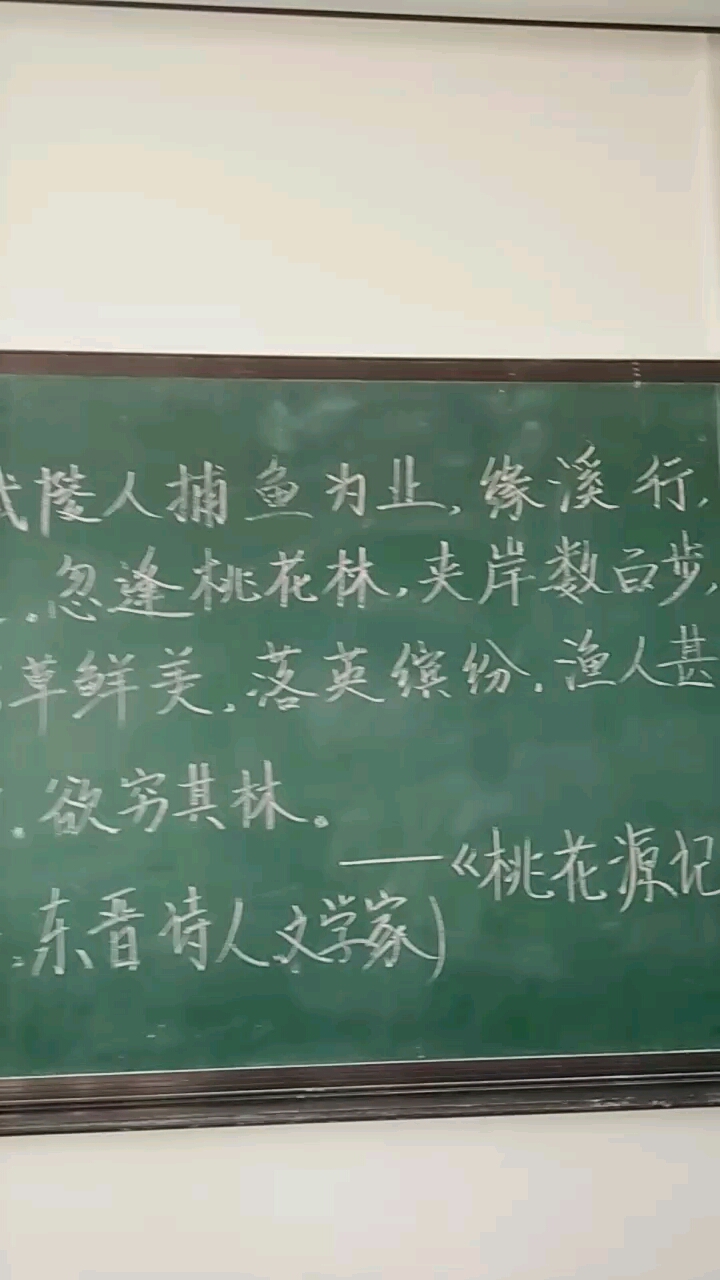 武陵人捕鱼为业,缘溪行,
忽逢桃花林,夹岸数百步,
草鲜美,落英缤纷,渔人甚
欲穷其林。
——《桃花源记
:东晋诗人文学家)